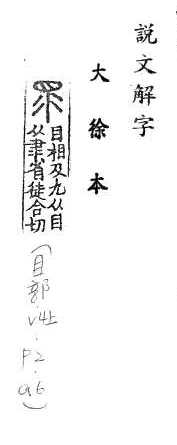 說文解字
大徐本
眔
目相及也从目
从隶省徒合切
(目部.V4上.P2.a.6)